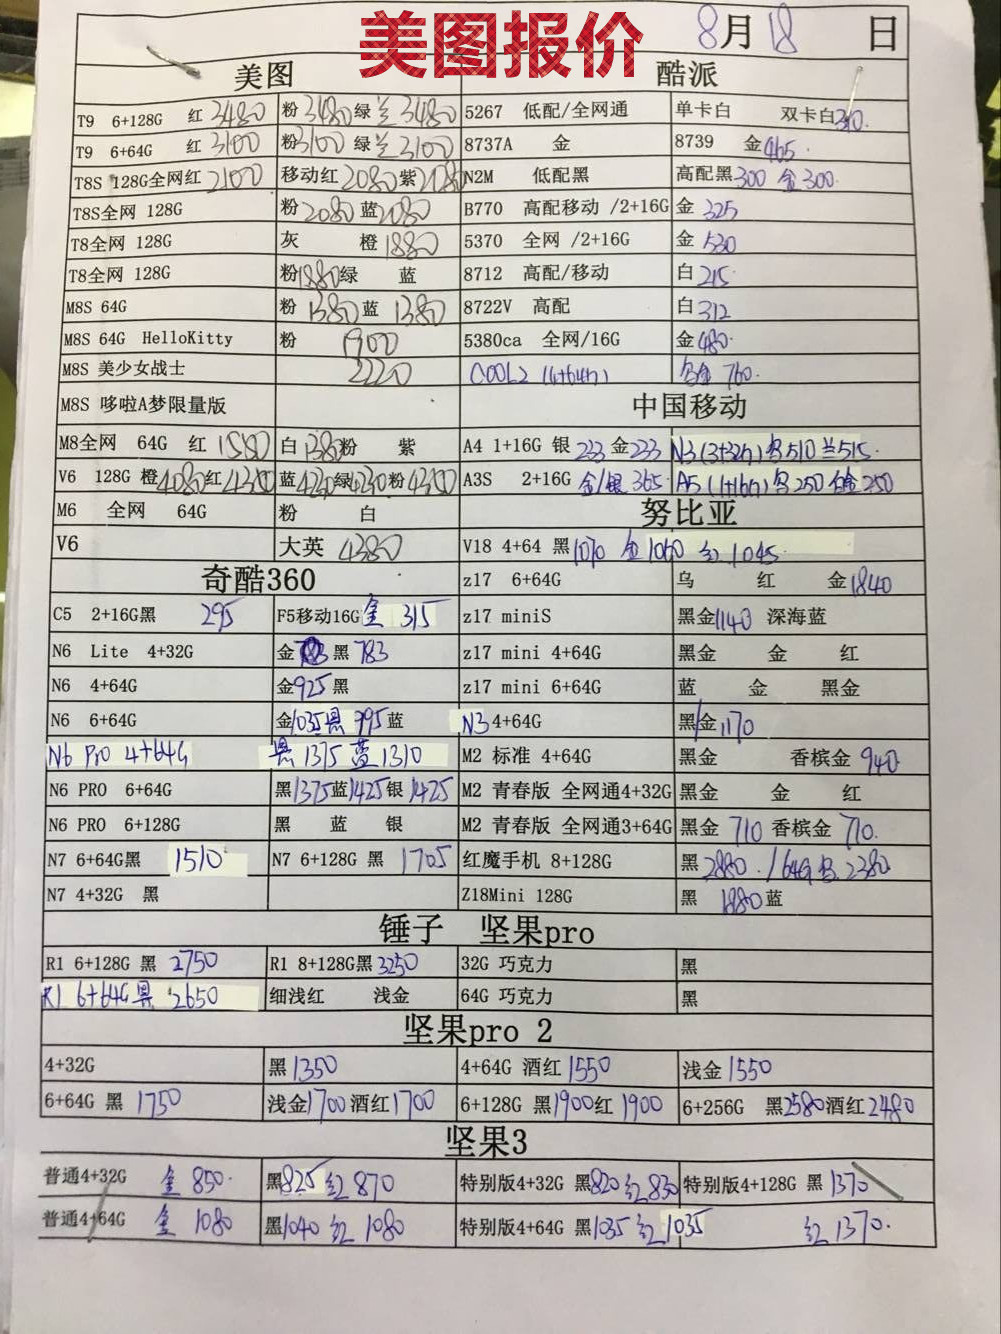 美图报价
8月18日
美图 酷派
T9 6+128G 红 3480 粉 3480 绿 兰 3480 5267 低配/全网通 单卡白 双卡白310.
T9 6+64G 红 3100 粉3100 绿 兰 3100 8737A 金 8739 金465.
T8S 128G全网红 2100 移动红 2080 紫 2080 N2M 低配黑 高配黑 300 金 300.
T8S全网 128G 粉 2080 蓝 2080 B770 高配移动 /2+16G 金 325
T8全网 128G 灰 橙 1880 5370 全网 /2+16G 金 530
T8全网 128G 粉1880 绿 蓝 8712 高配/移动 白 215.
M8S 64G 粉 1380 蓝 1380 8722V 高配 白 312
M8S 64G HelloKitty 粉 1900 5380ca 全网/16G 金 480.
M8S 美少女战士 2220 COOL2 (4+64G) 760.
M8S 哆啦A梦限量版 中国移动
M8全网 64G 红 1580 白 1380 粉 紫 A4 1+16G 银 233 金 233 N3 (3+32G) 乌 510 兰 515.
V6 128G 橙 4080 红 4300 蓝 4230 绿 4230 粉 4300 A3S 2+16G 金/银 365 A5 (1+16G) 乌 250 白金 250
M6 全网 64G 粉 白 努比亚
V6 大英 4380 V18 4+64 黑 1070 金 1060 红 1045.
奇酷360 z17 6+64G 乌 红 金 1840
C5 2+16G黑 295 F5移动16G 金 315 z17 miniS 黑金 1140 深海蓝
N6 Lite 4+32G 金 黑 783 z17 mini 4+64G 黑金 金 红
N6 4+64G 金 925 黑 z17 mini 6+64G 蓝 金 黑金
N6 6+64G 金 1035 黑 995 蓝 N3 4+64G 黑/金 1170
N6 Pro 4+64G 黑 1375 蓝 1310 M2 标准 4+64G 黑金 香槟金 940
N6 PRO 6+64G 黑 1375 蓝 1425 银 1425 M2 青春版 全网通4+32G 黑金 金 红
N6 PRO 6+128G 黑 蓝 银 M2 青春版 全网通3+64G 黑金 710 香槟金 710.
N7 6+64G黑 1510 N7 6+128G 黑 1705 红魔手机 8+128G 黑 2880. /64G 乌 2380
N7 4+32G 黑 Z18Mini 128G 黑 1880 蓝
锤子 坚果pro
R1 6+128G 黑 2750 R1 8+128G黑 3250 32G 巧克力 黑
R1 6+64G 黑 2650 细浅红 浅金 64G 巧克力 黑
坚果pro 2
4+32G 黑 1350 4+64G 酒红 1550 浅金 1550
6+64G 黑 1750 浅金 1700 酒红 1700 6+128G 黑 1900 红 1900 6+256G 黑 2580 酒红 2480
坚果3
普通4+32G 金 850. 黑 825 红 870 特别版4+32G 黑 820 红 830 特别版4+128G 黑 1370
普通4+64G 金 1080 黑 1040 红 1080 特别版4+64G 黑 1035 红 1035 红 1370.